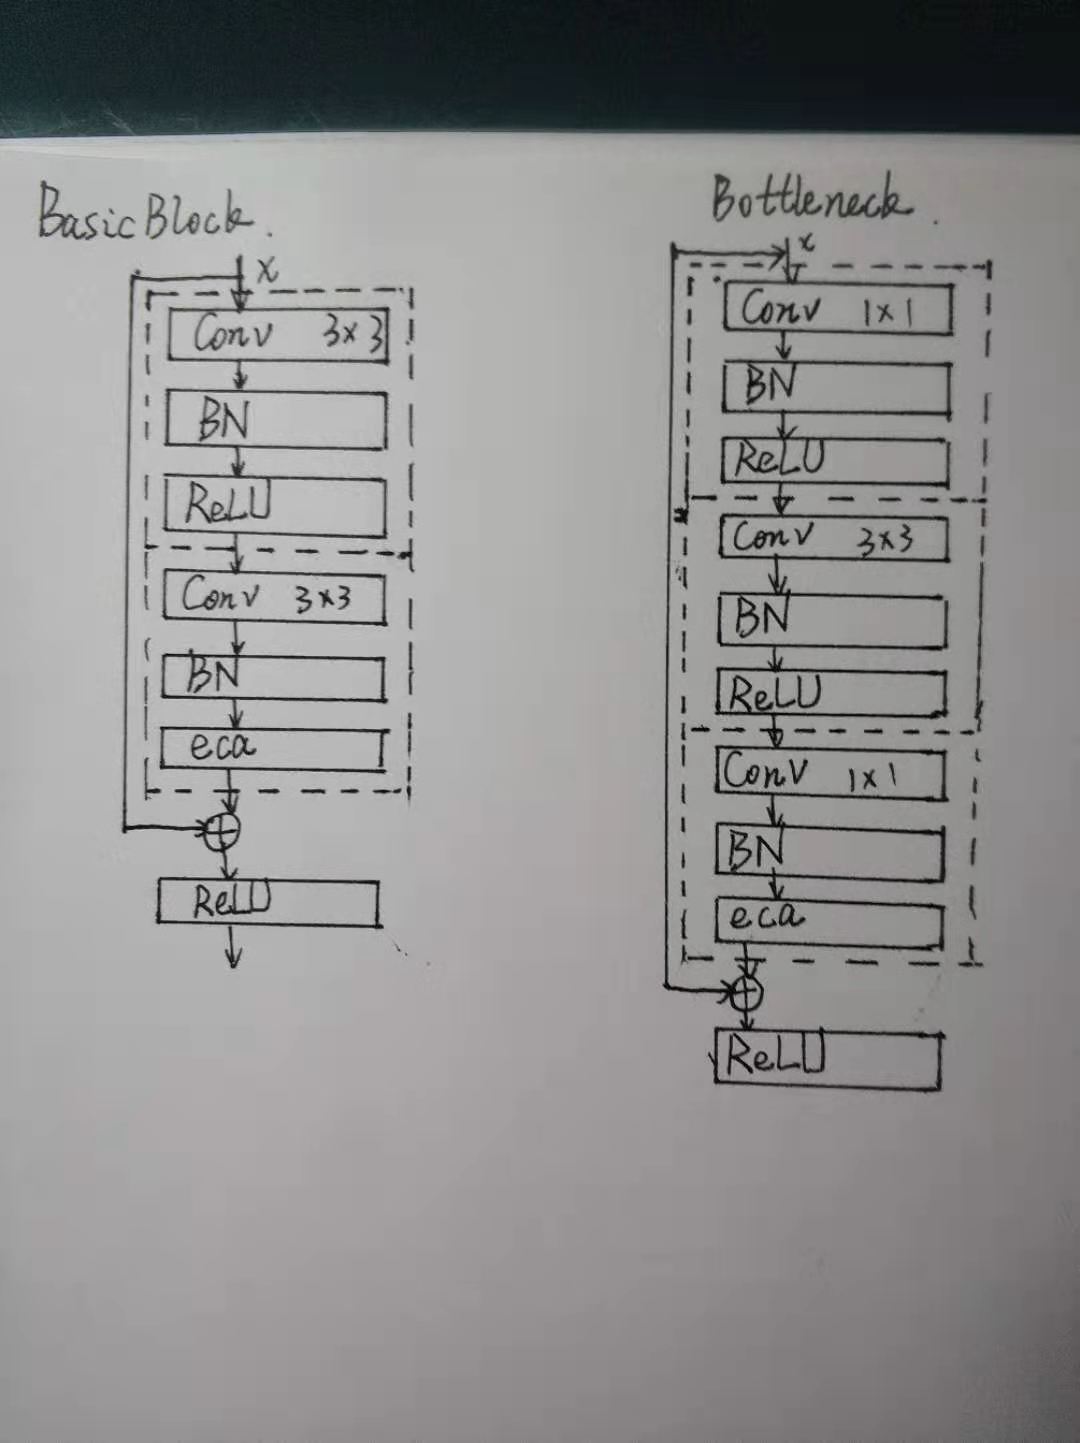 BasicBlock.
x
Conv 3×3
BN
ReLU
Conv 3×3
BN
eca
ReLU
Bottleneck.
x
Conv 1×1
BN
ReLU
Conv 3×3
BN
ReLU
Conv 1×1
BN
eca
ReLU